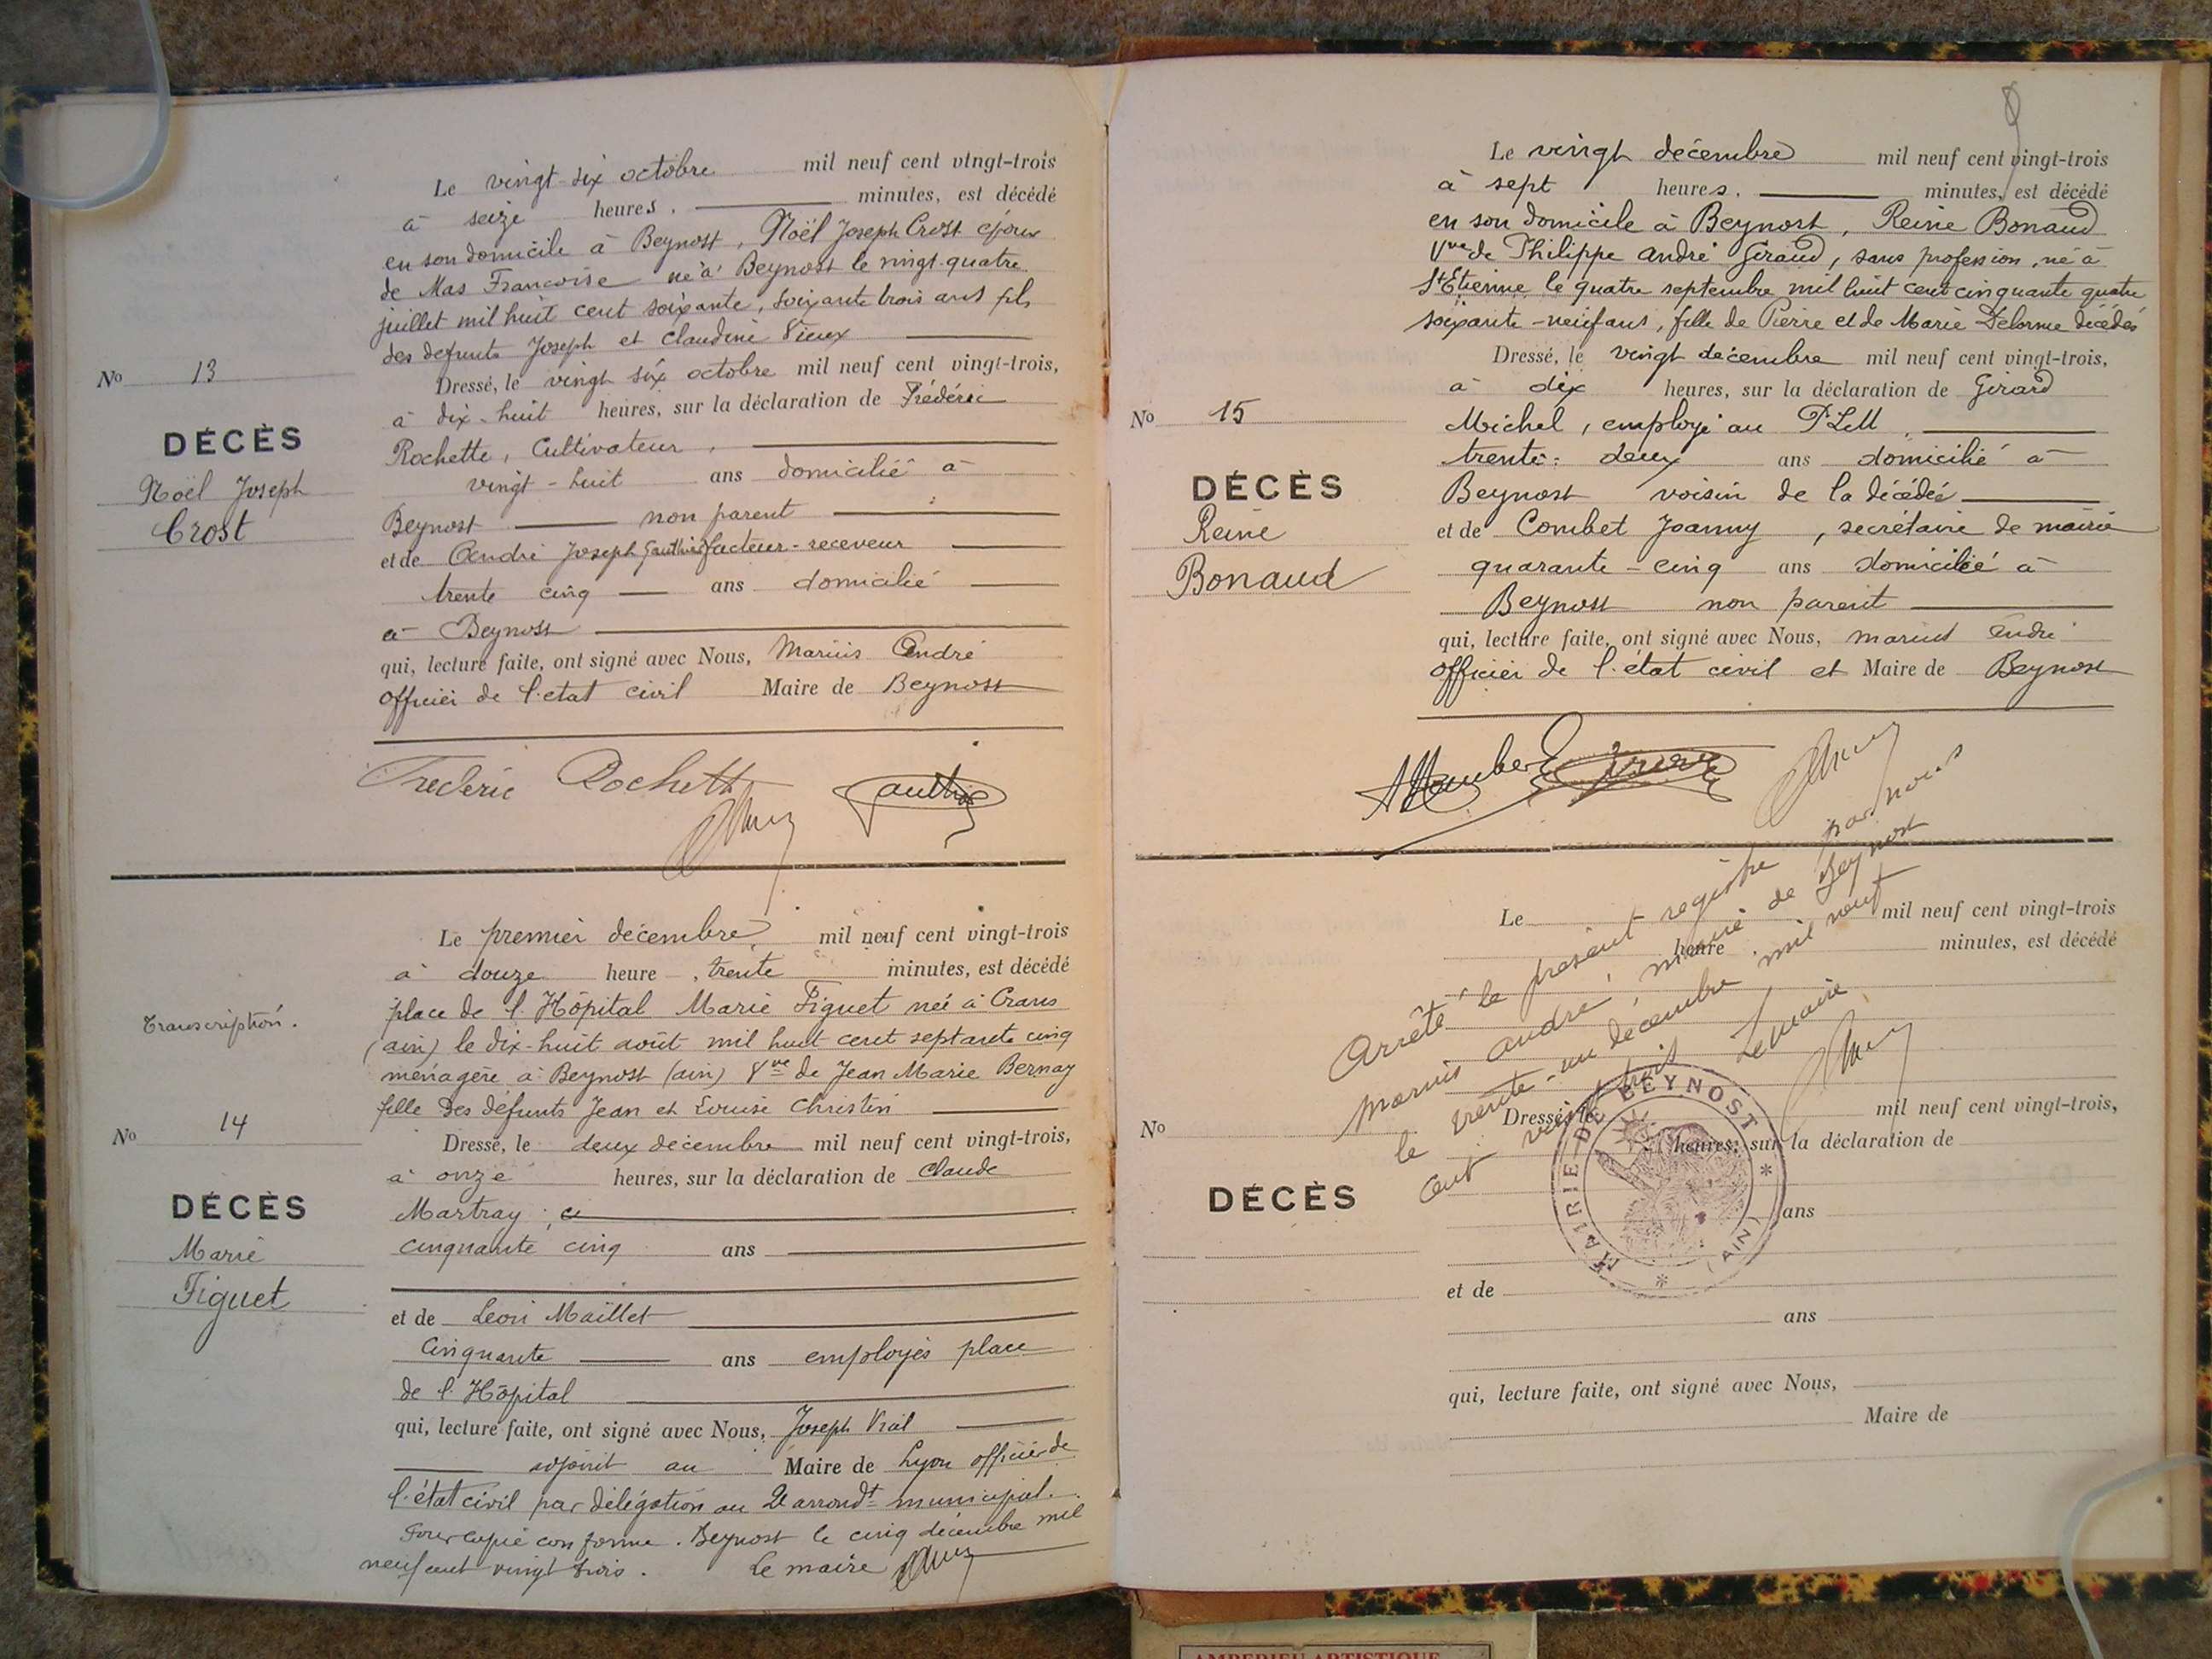 Le vingt-six octobre mil neuf cent vingt-trois
à seize heures. minutes, est décédé
en son domicile à Beynost, Noël Joseph Crost époux
de Mas Francoise né à Beynost le vingt-quatre
juillet mil huit cent soixante, soixante trois ans fils
des defunts Joseph et Claudine Vieux
No 13
Dressé, le vingt six octobre mil neuf cent vingt-trois,
à dix-huit heures, sur la déclaration de Frédéric
DÉCÈS
Noël Joseph
Crost
Rochette, Cultivateur,
vingt-huit ans domicilié à
Beynost non parent
et de André Joseph Gauthier facteur-receveur
trente cinq ans domicilié
à Beynost
qui, lecture faite, ont signé avec Nous, Marius André
officier de l'état civil Maire de Beynost
Frederic Rochette
Gauthier
Le premier décembre, mil neuf cent vingt-trois
à douze heure, trente minutes, est décédé
Transcription.
place de l'Hôpital Marie Figuet née à Crans
(ain) le dix-huit août mil huit cent septante cinq
ménagère à Beynost (ain) Vve de Jean Marie Bernay
fille des défunts Jean et Louise Christin
No 14
Dressé, le deux décembre mil neuf cent vingt-trois,
à onze heures, sur la déclaration de Claude
DÉCÈS
Marie
Figuet
Martray,
cinquante cinq ans
et de Léon Maillet
Cinquante ans employés place
de l'Hôpital
qui, lecture faite, ont signé avec Nous, Joseph Vial
adjoint au Maire de Lyon officier de
l'état civil par délégation au 2e arrondt municipal.
Pour copie conforme. Beynost le cinq décembre mil
neuf cent vingt trois. Le maire
Le vingt décembre mil neuf cent vingt-trois
à sept heures. minutes, est décédé
en son domicile à Beynost, Reine Bonaud
Vve de Philippe André Giraud, sans profession, né à
St Etienne le quatre septembre mil huit cent cinquante quatre
soixante-neuf ans, fille de Pierre et de Marie Delorme décédés
Dressé, le vingt décembre mil neuf cent vingt-trois,
à dix heures, sur la déclaration de Girard
No 15
DÉCÈS
Reine
Bonaud
Michel, employé au PLM,
trente-deux ans domicilié à
Beynost voisin de la décédée
et de Combet Joanny, secrétaire de mairie
quarante-cinq ans domicilié à
Beynost non parent
qui, lecture faite, ont signé avec Nous, Marius André
officier de l'état civil et Maire de Beynost
Arrêté le présent registre par nous
Marius André, maire de Beynost
le trente-un décembre mil neuf
cent vingt trois Le maire
Le mil neuf cent vingt-trois
heure minutes, est décédé
No
Dressé, le mil neuf cent vingt-trois,
heures, sur la déclaration de
DÉCÈS
MAIRIE DE BEYNOST
(AIN)
ans
et de
ans
qui, lecture faite, ont signé avec Nous,
Maire de
AMBERIEU ARTISTIQUE